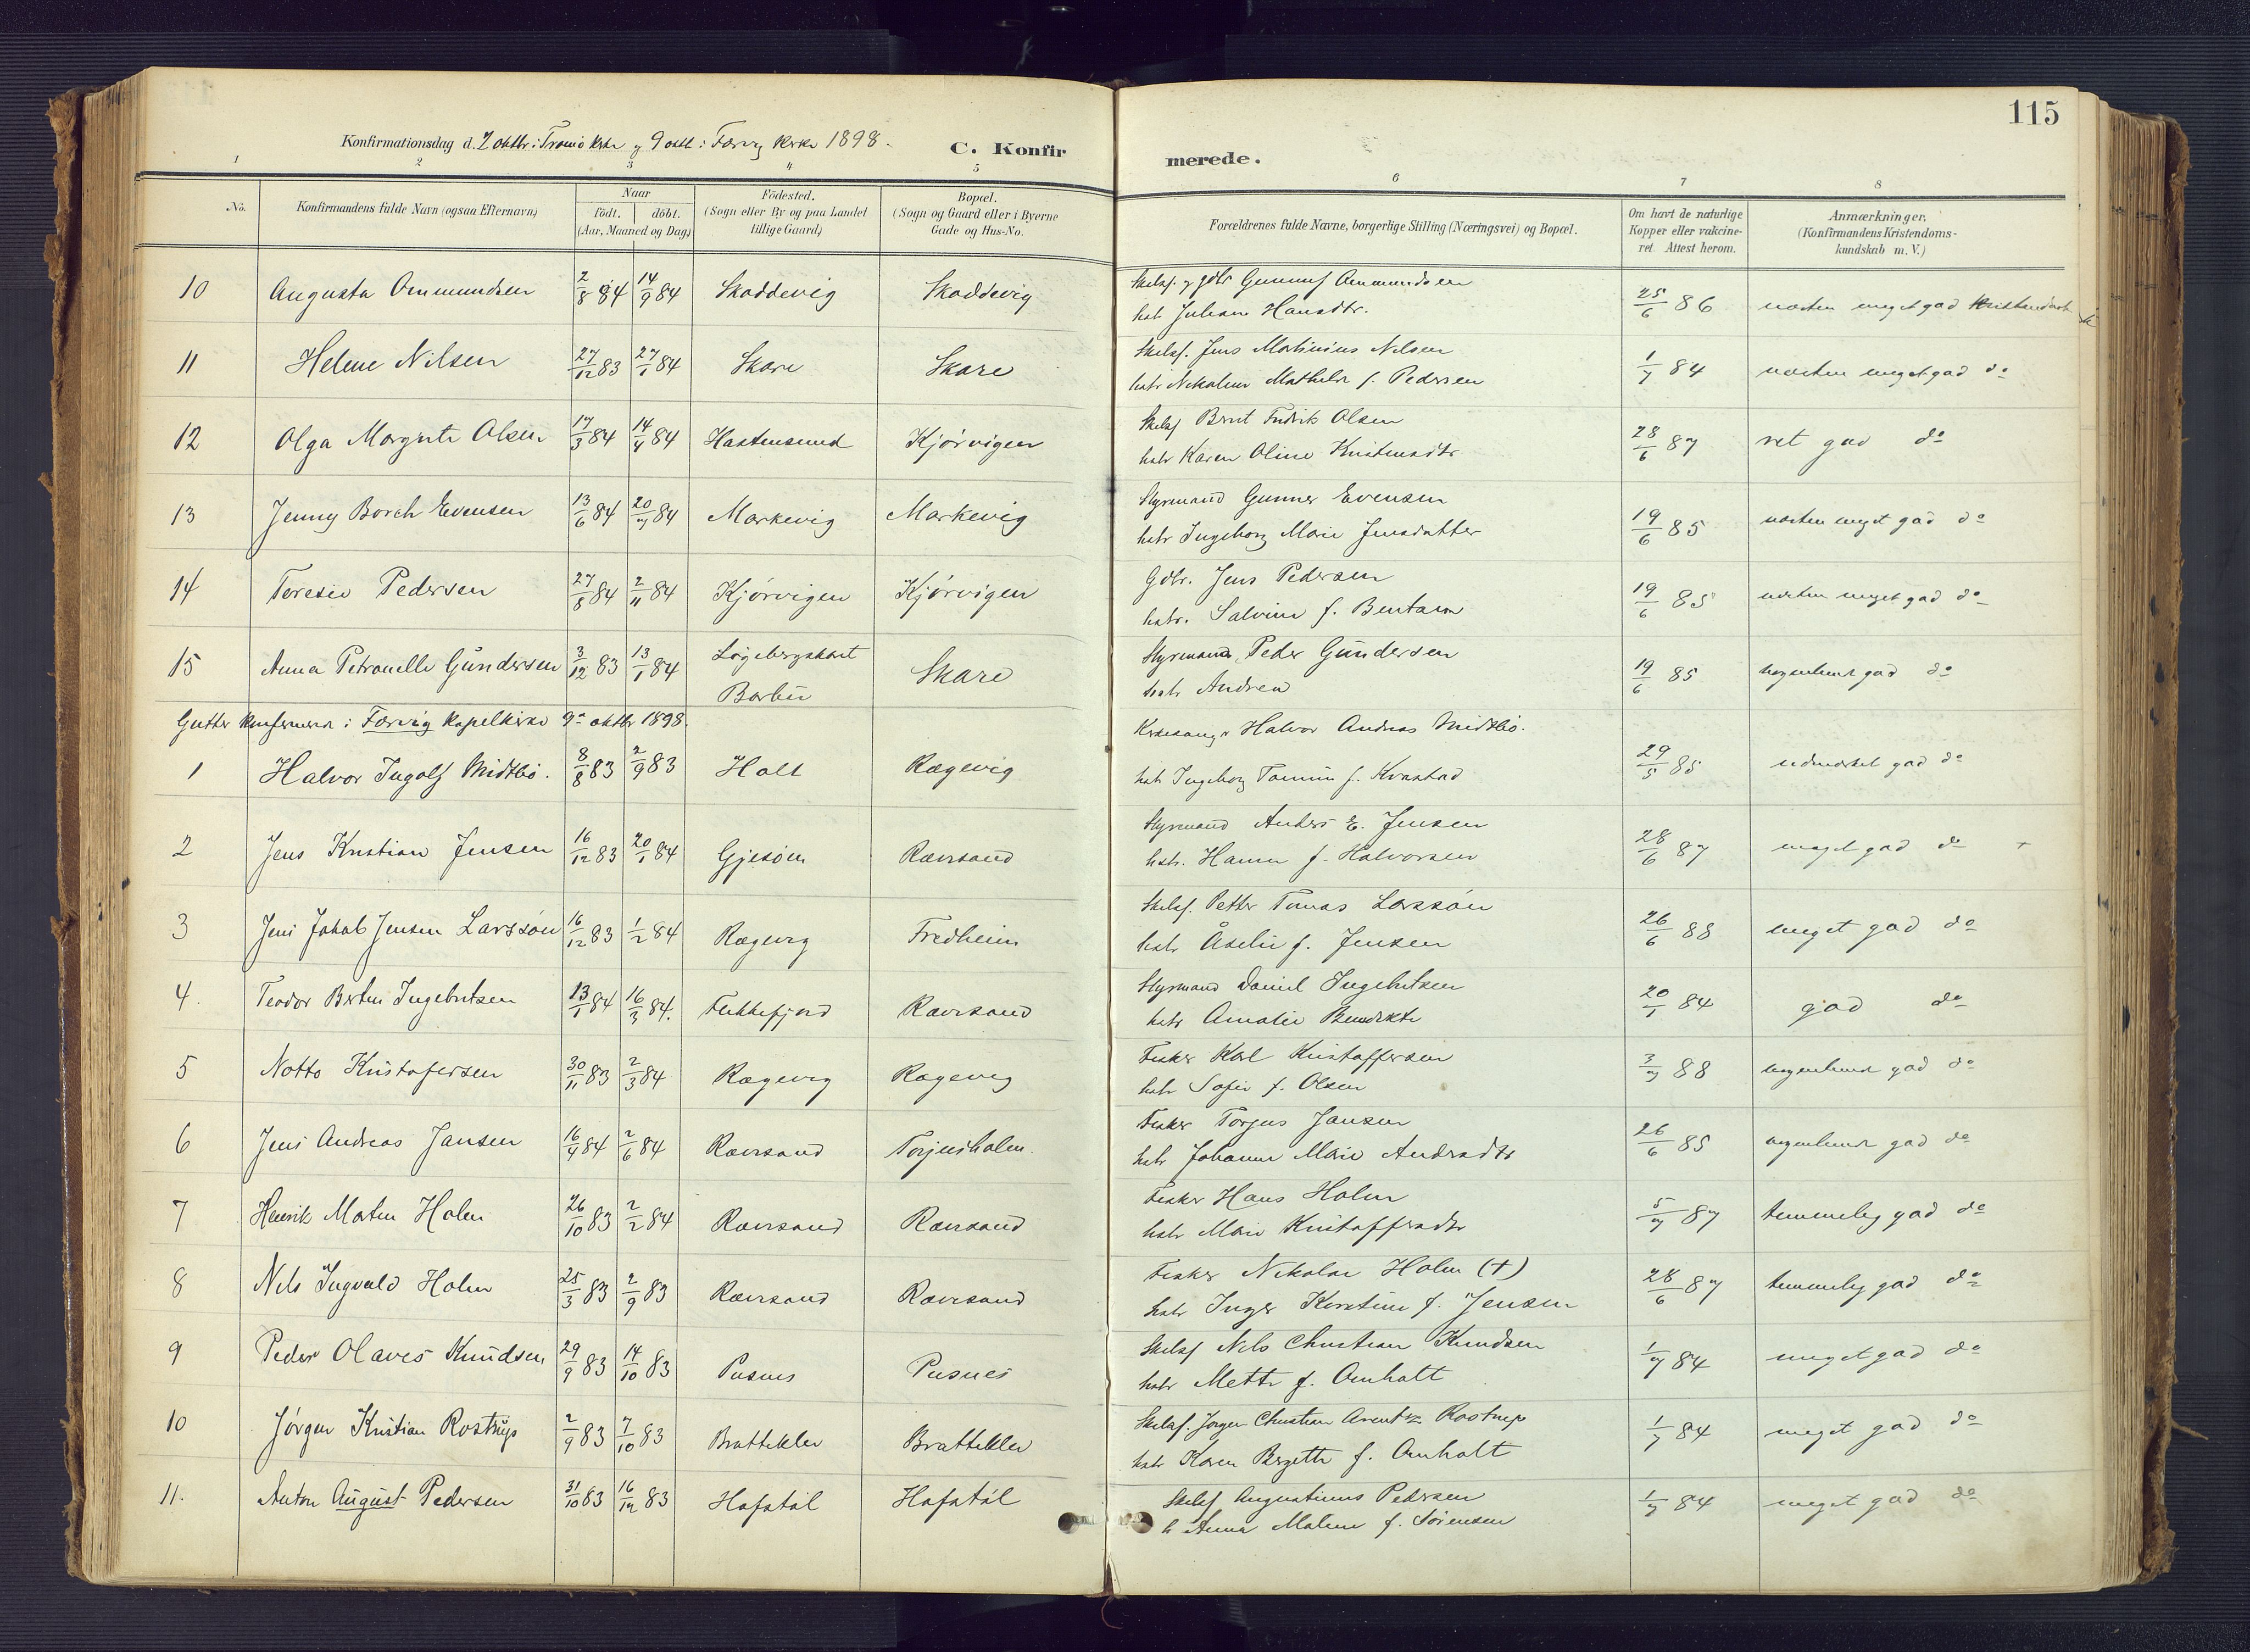 115
Konfirmationsdag d. 2 oktbr i Tromö Kirke og 9 oktb i Færvig Kirke 1898.
C. Konfirmerede.
1 2 3 4 5 6 7 8
No.
Konfirmandens fulde Navn (ogsaa Efternavn)
Naar
födt. döbt.
(Aar, Maaned og Dag)
Födested.
(Sogn eller By og paa Landet
tillige Gaard)
Bopæl.
(Sogn og Gaard eller i Byerne
Gade og Hus-No.
Forældrenes fulde Navne, borgerlige Stilling (Næringsvei) og Bopæl.
Om havt de naturlige
Kopper eller vakcine-
ret. Attest herom.
Anmærkninger.
(Konfirmandens Kristendoms-
kundskab m. V.)
10 Augusta Ommundsen 2/8 84 14/9 84 Skaddevig Skaddevig
Skibsf. og gdbr Gunuf Ommundsen
hstr Juliane Hansdtr. 25/6 86 næsten meget god
11 Helene Nilsen 27/12 83 27/1 84 Skare Skare
Skibsf. Jens Martinius Nilsen
hstr Nikoline Mathilde f. Pedersen 1/7 84 næsten meget god do
12 Olga Margrete Olsen 17/3 84 14/4 84 Hastensund Kjörvigen
Skibsf Bernt Fredrik Olsen
hstr Karen Oline Kristensdtr 28/6 87 ret god do
13 Jenny Borch Evensen 13/6 84 20/7 84 Markevig Markevig
Styrmand Gunner Evensen
hstr Ingeborg Marie Jensdatter 19/6 85 næsten meget god do
14 Teresie Pedersen 27/8 84 2/11 84 Kjörvigen Kjörvigen
Gdbr. Jens Pedersen
hstr. Salvine f. Bentsen 19/6 85 næsten meget god do
15 Anna Petronelle Gundersen 3/12 83 13/1 84 Barbu Skare
Styrmand Peder Gundersen
hstr Andrea 19/6 85 nogenlund god do
Gutter konfirmered i Færvig Kapelkirke 9de oktbr 1898.
1 Halvor Ingolf Midtbö. 8/8 83 2/9 83 Holt Rægevig
Kirkesanger Halvor Andreas Midtbö.
hstr Ingeborg Tomine f. Kvastad 29/5 85 udmærket god do
2 Jens Kristian Jensen 16/12 83 20/1 84 Gjesöen Rævesand
Styrmand Anders E. Jensen
hstr. Hanne f. Halvorsen 28/6 87 meget god do +
3 Jens Jakob Jensen Larssön 16/12 83 1/2 84 Rægevig Fredheim
Skibsf. Petter Tomas Larssön
hstr Åselie f. Jensen 26/6 88 meget god do
4. Teodor Bertin Ingebretsen 13/1 84 16/3 84. Flekkefjord Rævesand
Styrmand Daniel Ingebretsen
hstr Amalie Benedikte 20/1 84 god do
5 Notto Kristofersen 30/11 83 2/3 84 Rægevig Rægevig
Fisker Karl Kristoffersen
hstr Sofie f. Olsen 3/7 88 nogenlund god do
6 Jens Andreas Jansen 16/4 84 2/6 84 Rævesand Torjusholm.
Fisker Torjus Jansen
hstr Johanne Marie Andersdtr 26/6 85 nogenlunde god do
7 Henrik Morten Holm 26/10 83 2/2 84 Rævesand Rævesand
Fisker Hans Holm
hstr Marie Kristoffersdtr 5/7 87 temmelig god do
8 Nils Ingvald Holm 25/3 83 2/9 83 Rævesand Rævesand
Fisker Nikolai Holm (+)
hstr Inger Kirstine f. Jensen 28/6 87 temmelig god do
9 Peder Olaves Knudsen 29/9 83 14/10 83 Pusnes Pusnes
Skibsf Nils Christian Knudsen
hstr Mette f. Omholt 1/7 84 meget god do
10 Jörgen Kristian Rostrup 2/9 83 7/10 83 Bratteklev Bratteklev
Skibsf. Jörgen Christian Arentz Rostrup
hstr Karen Birgette f. Omholt 1/7 84 meget god do
11. Anton August Pedersen 31/10 83 16/12 83 Hofstöl Hofstöl
Skibsf Augustinus Pedersen
h Anna Maline f. Sörensen 1/7 84 meget god do